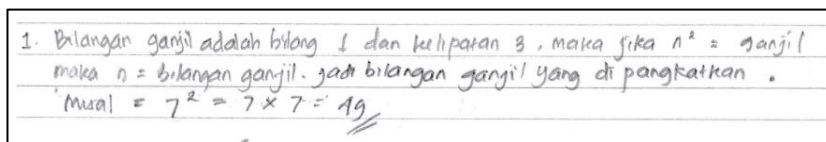 1. Bilangan ganjil adalah bilang 1 dan kelipatan 3, maka jika n² = ganjil
maka n = bilangan ganjil. jadi bilangan ganjil yang di pangkatkan.
Misal = 7² = 7 × 7 = 49